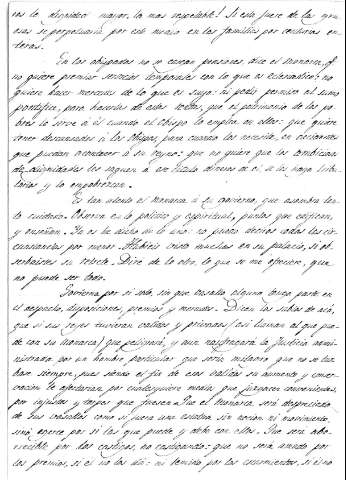 ros le dignidad mayor, la mas respetable! Si este fuere de la
se perpetuaria por este medio en las familias por centurias en-
teras.
En los obispados no se cargan pensiones dice el monarca, y
no quiere premiar servicios temporales con lo que es eclesiastico: no
quiere hacer mercedes de lo que es suyo: ni pedir permiso al sumo
pontifice, para hacerlas de estas rentas, que el patrimonio de los po-
bres le sirve a él cuando el obispo lo emplea en ellos: que quiere
tener descansados à los obispos para cuando los necesite, en ocasiones
que puedan acontecer à su reyno: que no quiere que los
de dignidades les saquen à titulo dineros que à el à los haga tribu-
tarios y lo empobrezcan.
Es tan atento el monarca à su govierno, que asombra tan-
to cuidado. Observa en lo politico y espiritual, puntos que
y enseñan. Ya os he dicho de lo uno: no puedo deciros todas las cir-
cunstancias por menor. Habeis visto muchas en su palacio, si ob-
servasteis su retrete. Dire de lo otro, lo que se me ofreciere, que
no puede ser todo.
Govierna por si solo, sin que vasallo alguno tenga parte en
el despacho, disposiciones, premios y mercedes. Dicen los sabios de acá,
que si sus reyes tuvieran validos y privados (asi llaman al que pue-
de con su monarca) que peligraria, y aun naufragara la Justicia admi-
nistrada por un hombre particular que seria misterio que no se tor-
base siempre, pues siendo el fin de esos validos su aumento y conser-
vacion le afectarian por cualesquiera medios que juzgaren convenientes,
por injustos y torpes que fuesen. Que el monarca será despreciado
de sus vasallos como si fuera una estatua sin accion ni movimiento,
sino opera por si las que puede y debe con ellos. Que será abo-
rrecible por dos castigos, no castigando: que no será amado por
los premios, si el no los dá: ni temido por los escarmientos, si el no